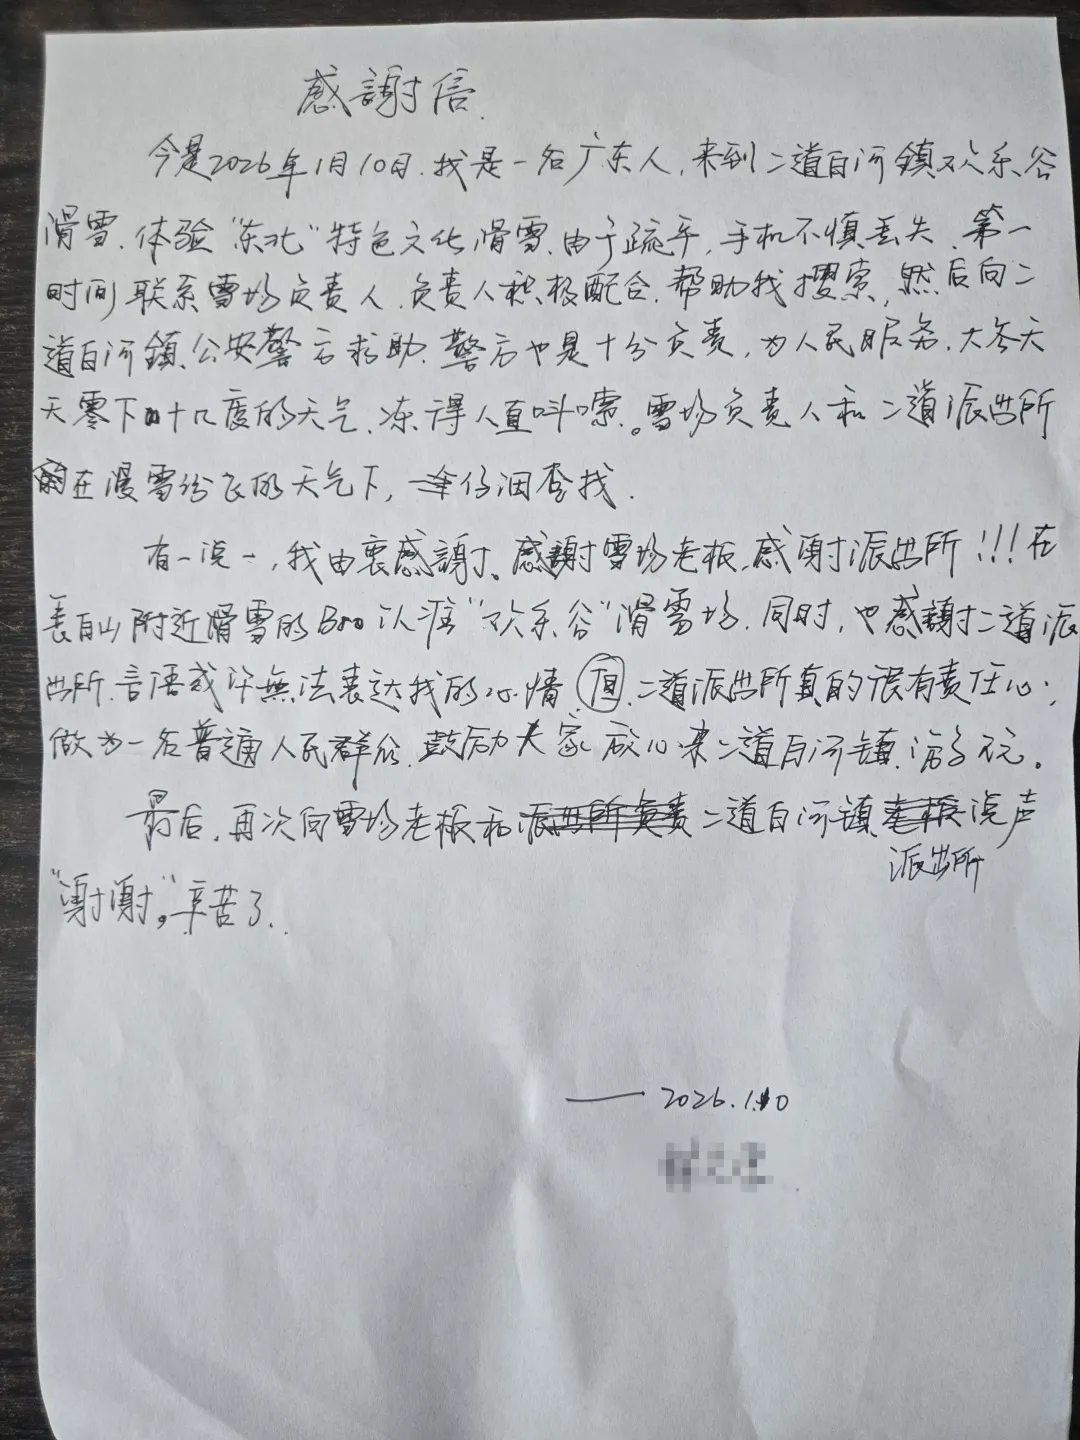 感謝信
今是2026年1月10日.我是一名广东人,来到二道白河鎮欢乐谷
滑雪.体验"东北"特色文化滑雪.由于疏乎,手机不慎丢失.第一
时间联系雪场负责人.负责人积极配合.帮助我搜索,然后向二
道白河鎮.公安警方求助.警方也是十分负责,为人民服务.大冬天
天零下十几度的天气.冻得人直哆嗦。雪场负责人和二道派出所
在漫雪纷飞的天气下,仔细查找.
有一说一,我由衷感謝。感謝雪场老板.感謝派出所!!!在
長白山附近滑雪的Bro认准"欢乐谷"滑雪场.同时,也感謝二道派
出所.言语或许無法表达我的心情.但.二道派出所真的很有责任心;
做为一名普通人民群众.鼓励大家放心来二道白河镇.游玩。
最后,再次向雪场老板和二道白河镇派出所说声
"谢谢",辛苦了..
—— 2026.1.10